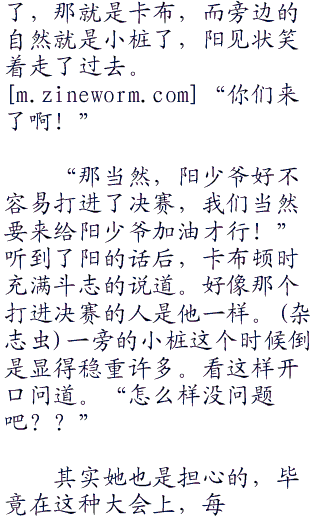 了，那就是卡布，而旁边的
自然就是小桩了，阳见状笑
着走了过去。
[m.zineworm.com]“你们来
了啊！”
“那当然，阳少爷好不
容易打进了决赛，我们当然
要来给阳少爷加油才行！”
听到了阳的话后，卡布顿时
充满斗志的说道。好像那个
打进决赛的人是他一样。(杂
志虫)一旁的小桩这个时候倒
是显得稳重许多。看这样开
口问道。“怎么样没问题
吧？？”
其实她也是担心的，毕
竟在这种大会上，每